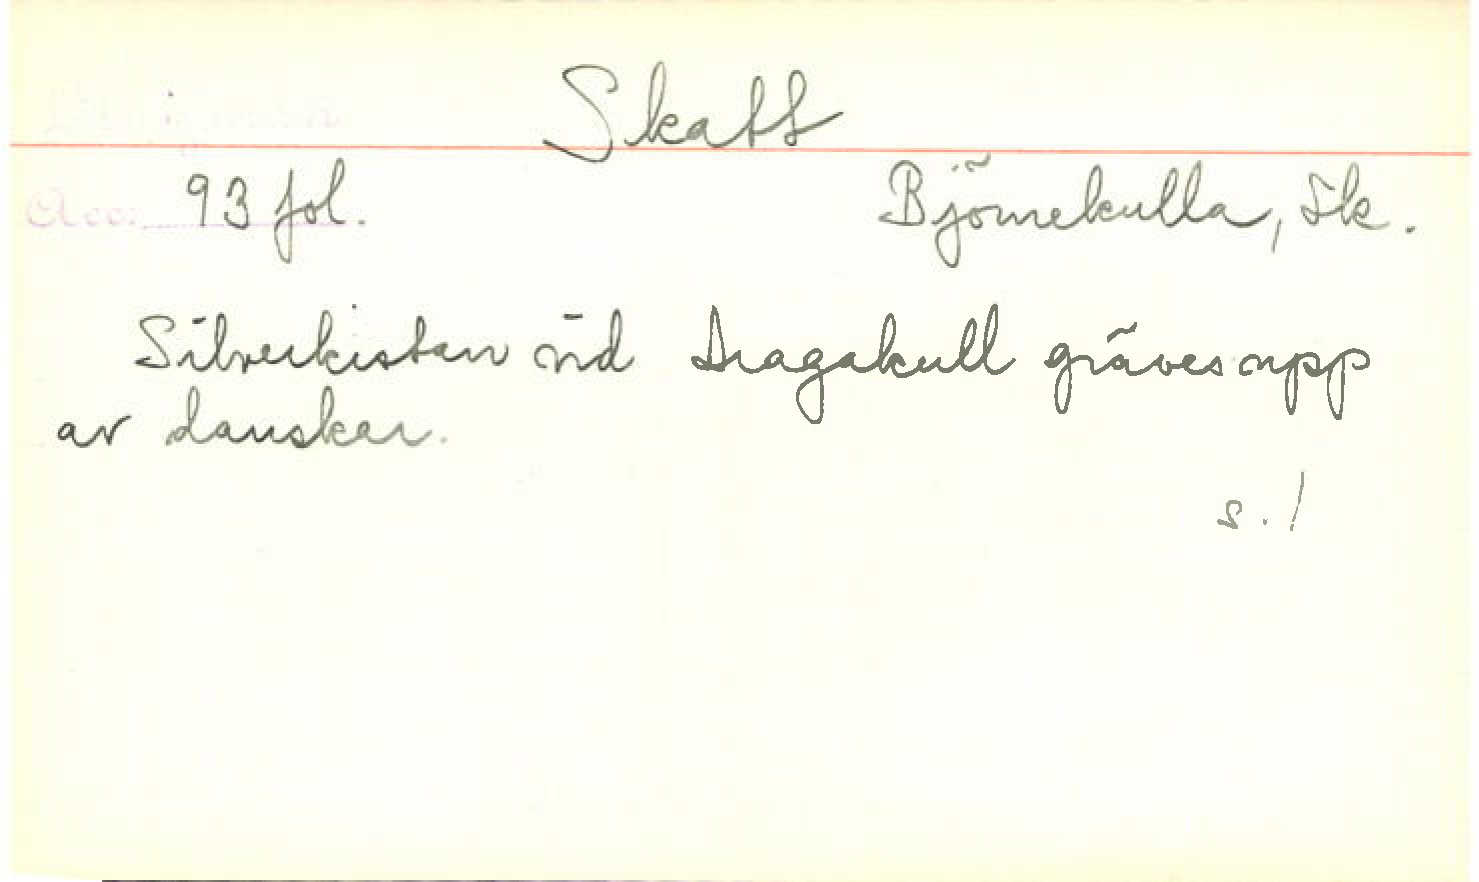 Skatt
Acc: 93 fol.
Björnekulla, Sk.
Silverkistan vid Dragakull gräves upp
av danskar.
s. 1